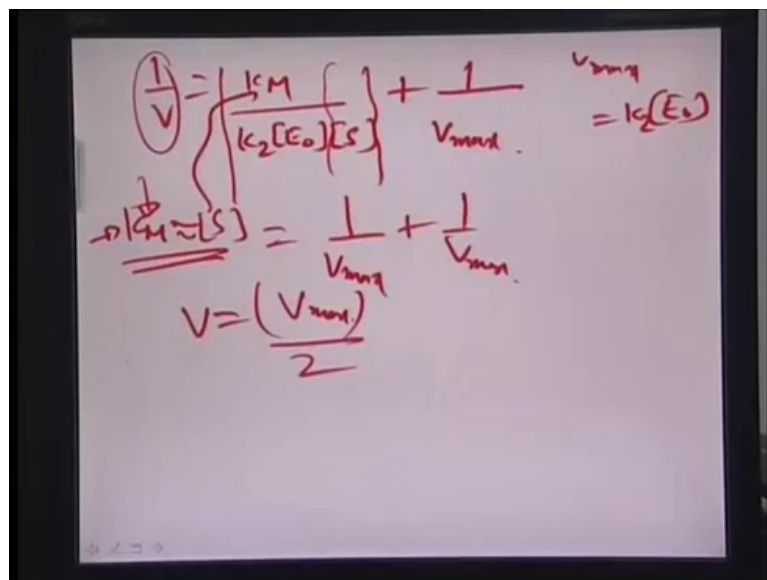 1/V = K_M / K_2[E_0][S] + 1/V_max.
V_max = K_2[E_0]
→ K_M = [S] = 1/V_max + 1/V_max.
V = (V_max.)/2